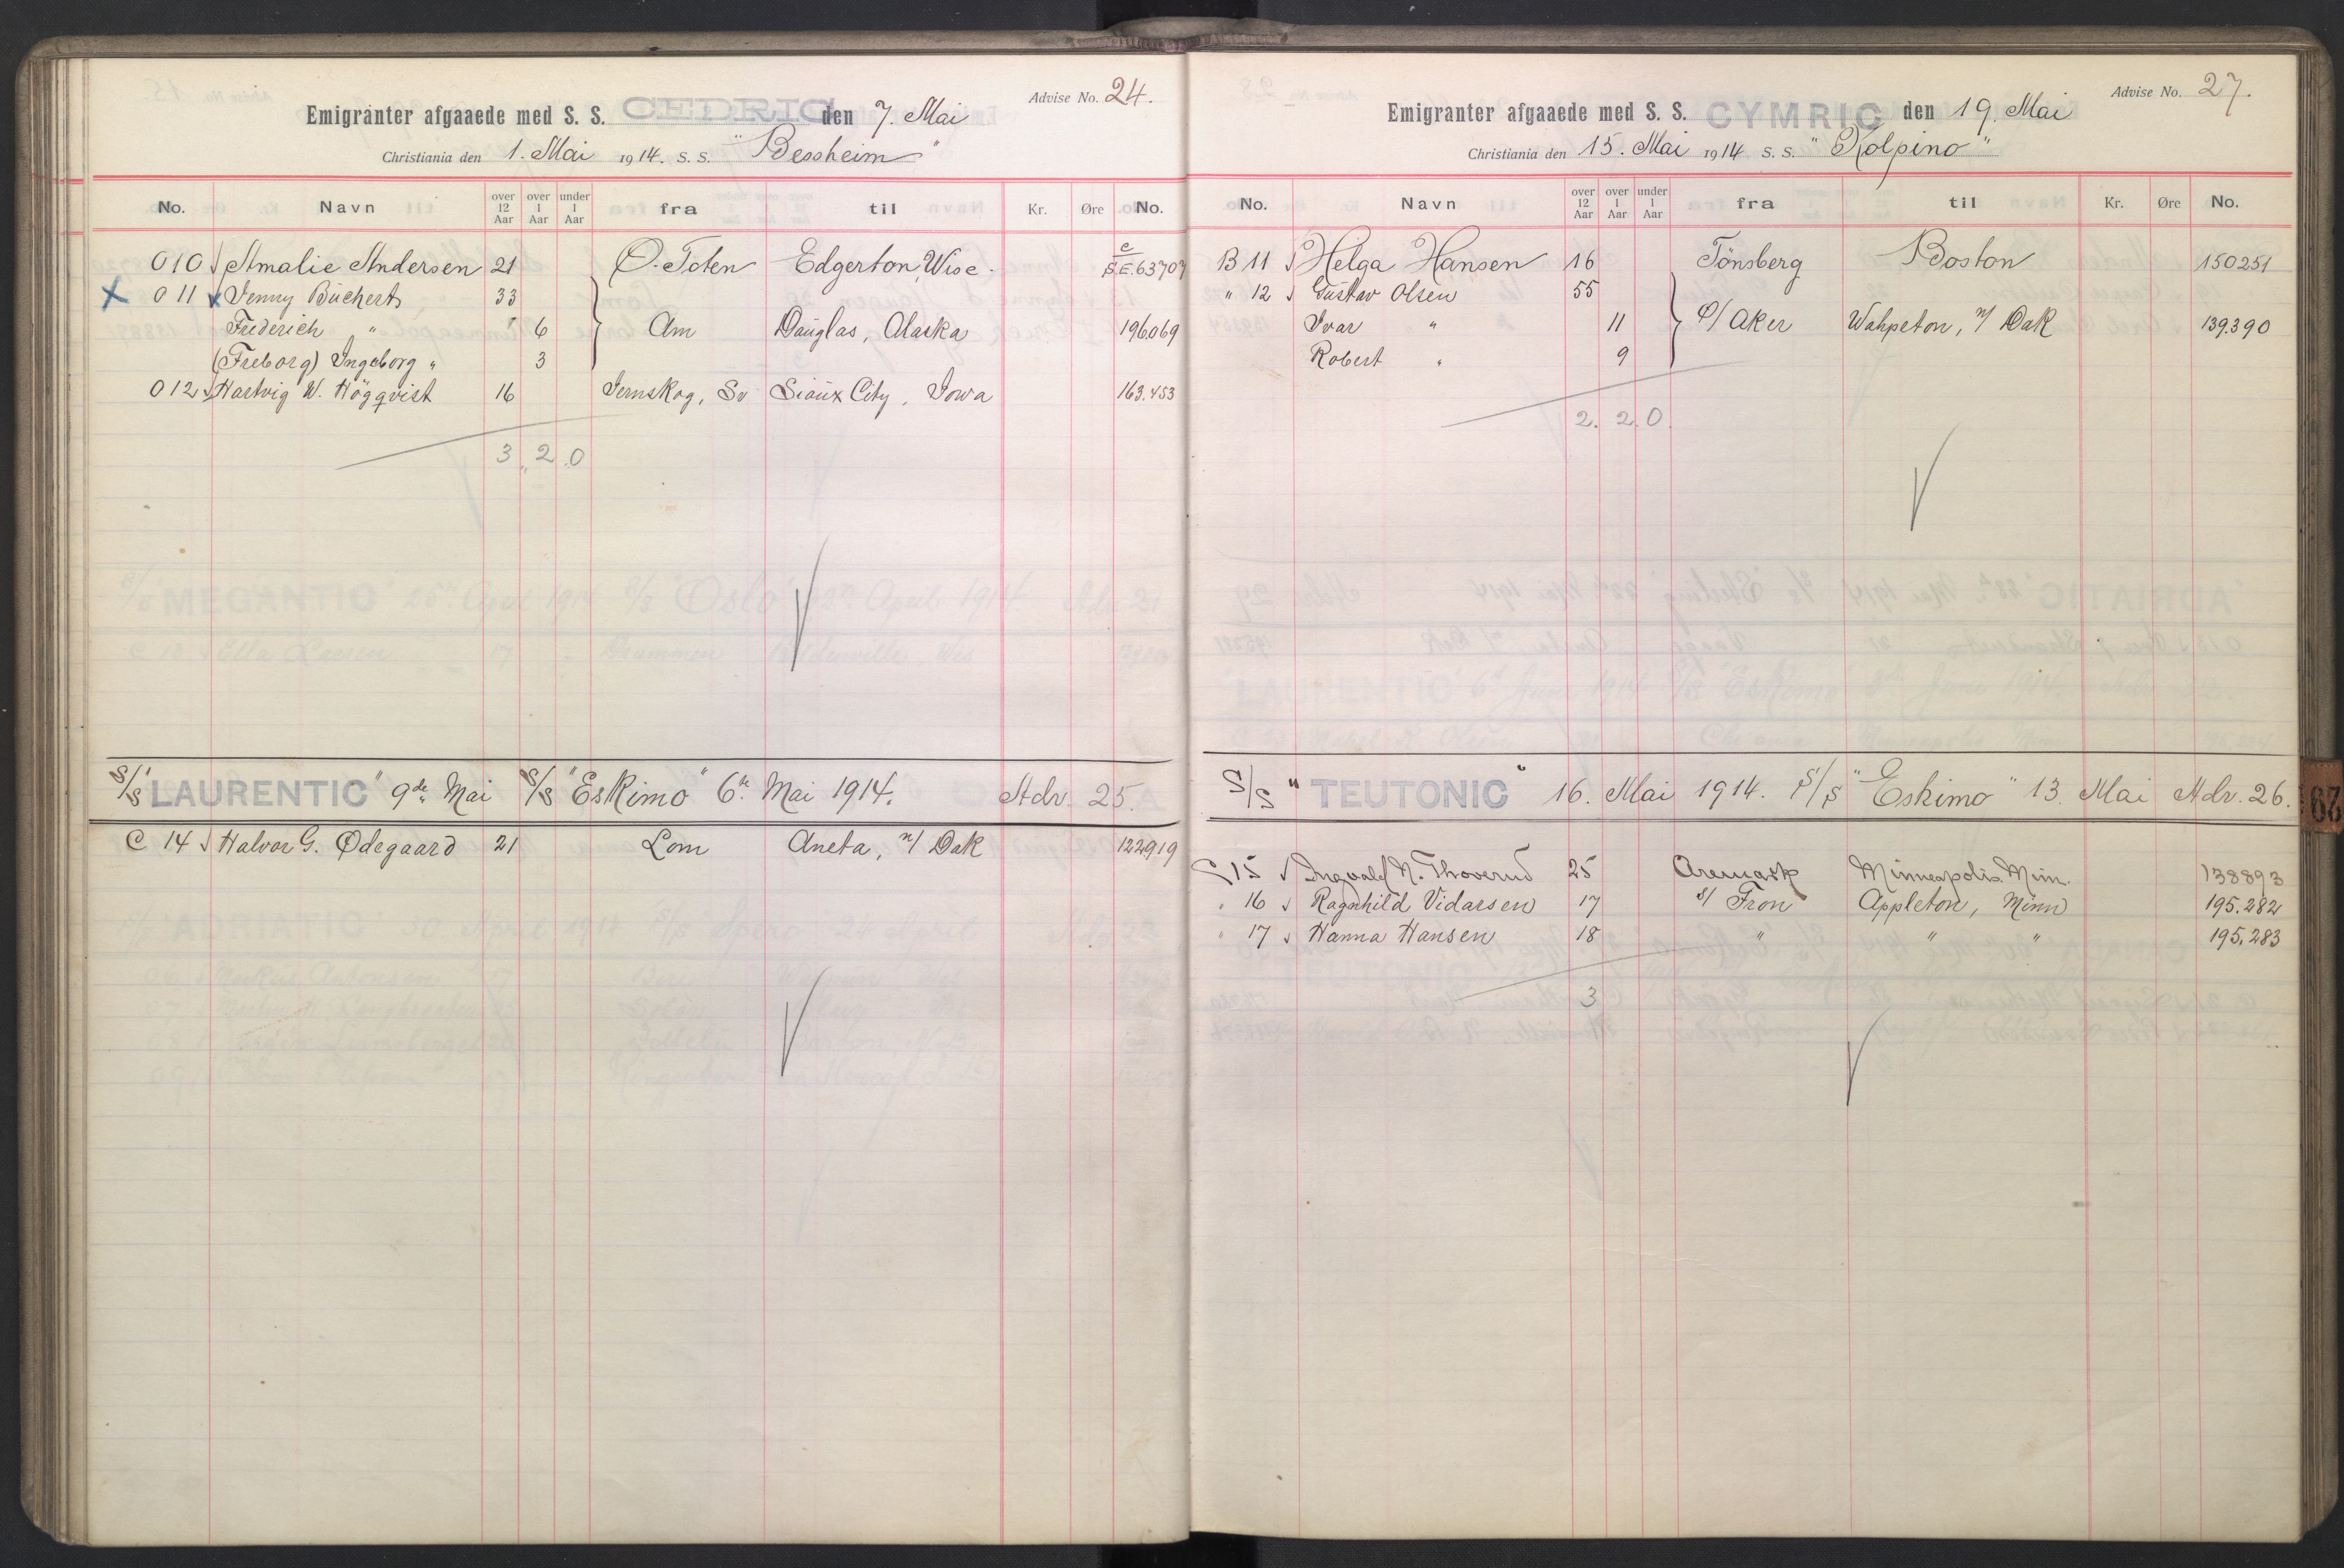 Advise No. 24.
Emigranter afgaaede med S. S. CEDRIC den 7. Mai
Christiania den 1. Mai 1914. S. S. "Bessheim"
No. Navn over 12 Aar over 1 Aar under 1 Aar fra til Kr. Øre No.
010 Amalie Andersen 21 Ø. Toten Edgerton, Wisc. c S.E.63707
X 011 x Jenny Büchert 33
Frederich " 6 Am Douglas, Alaska 196069
(Freborg) Ingeborg " 3
012 Hartvig W. Högqvist 16 Jernskog, Sv Sioux City, Iowa 163.453
3 2 0
S/S "LAURENTIC" 9de Mai S/S "Eskimo" 6te Mai 1914. Adv. 25.
C 14 Halvor G. Ødegaard 21 Lom Aneta, n/ Dak 122919
Advise No. 27.
Emigranter afgaaede med S. S. CYMRIC den 19. Mai
Christiania den 15. Mai 1914 S. S. "Kolpino"
No. Navn over 12 Aar over 1 Aar under 1 Aar fra til Kr. Øre No.
B 11 Helga Hansen 16 Tönsberg Boston 150251
" 12 Gustav Olsen 55
Ivar " 11 Ø/ Aker Wahpeton, n/ Dak 139.390
Robert " 9
2. 2. 0.
S/S "TEUTONIC" 16. Mai 1914. S/S "Eskimo" 13. Mai Adv. 26.
C 15 Ingvald N. Thoverud 25 Aremark Minneapolis Minn. 138893
" 16 Ragnhild Vidarsen 17 s/ Fron Appleton, Minn 195.282
" 17 Hanna Hansen 18 " " " 195.283
3
29